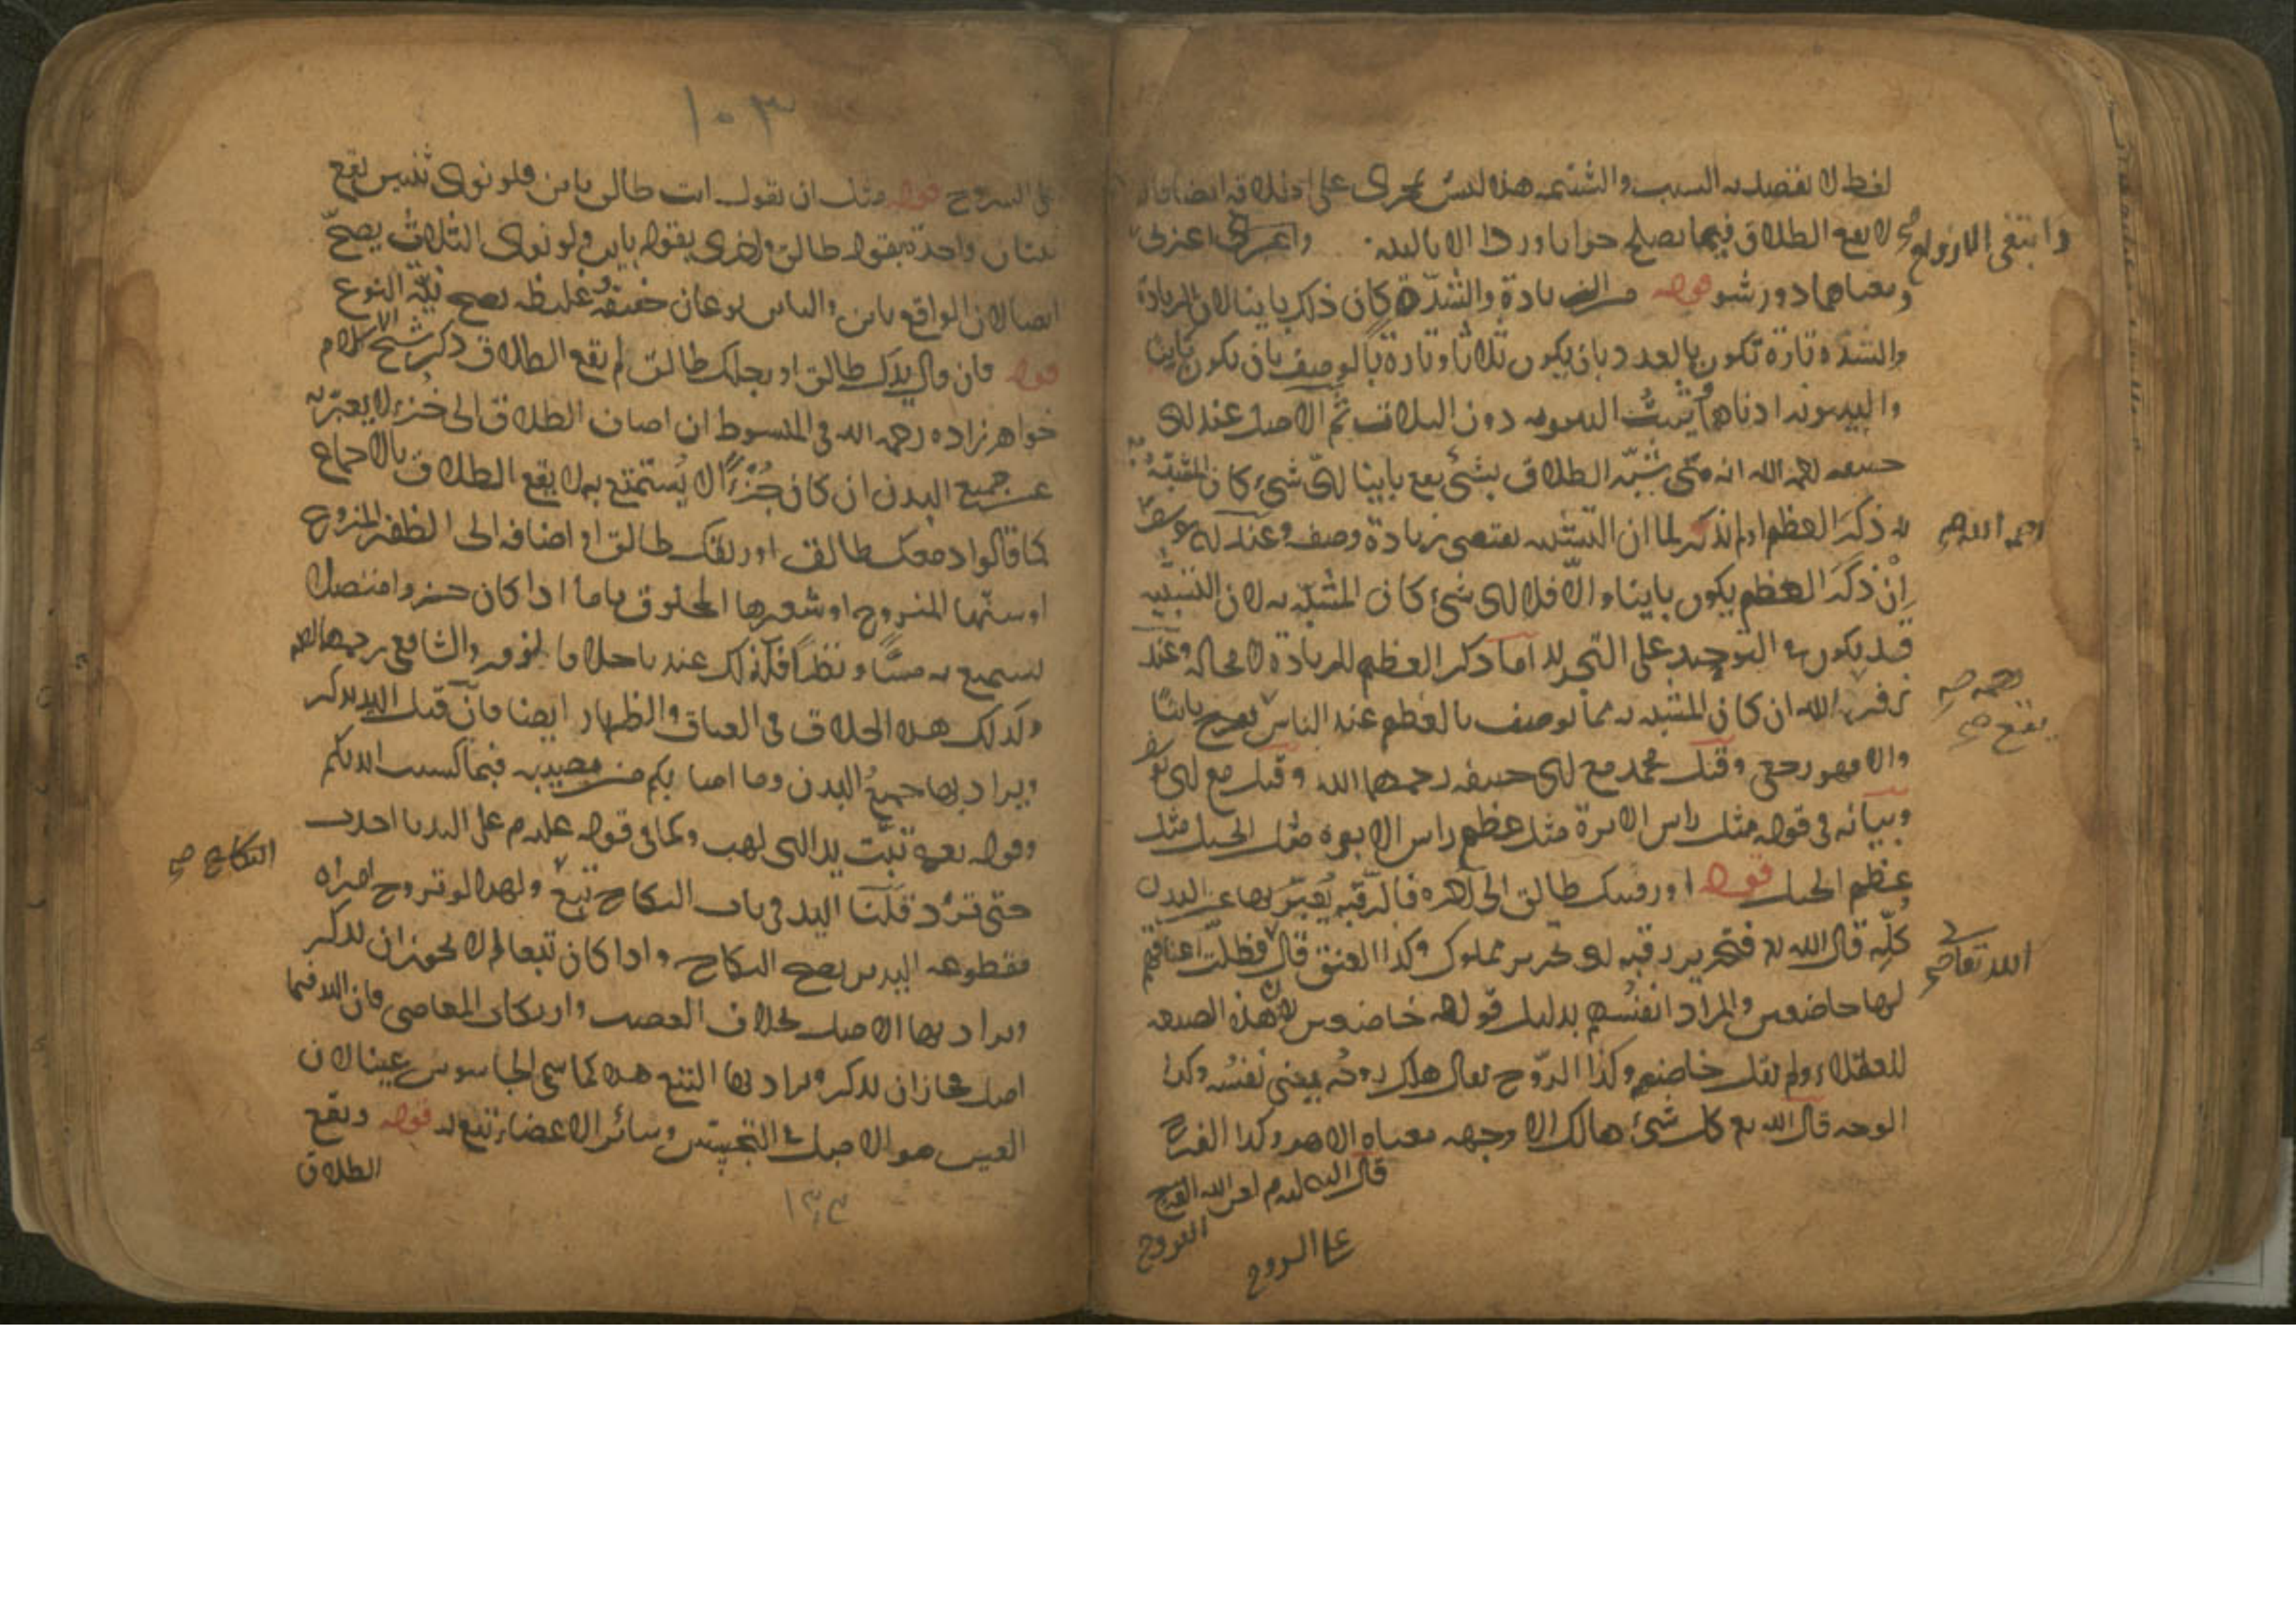 لفظ لا يقصد به السب والشتمه هذه ليس يجرى على ايضا
لا يقع الطلاق فيما يصلح جوابا وردا الا بالنيه واغربى اعزلى
وابتغى الازواج صح
ومعناهما دور شو قوله من الزيادة والشدّة كان ذلك باينا لان الزيادة
والشده تارة تكون بالعدد بان يكون ثلاثا وتارة بالوصف بان يكون باينا
والبينونه ادناهما يثبت البينونه دون الثلاث ثم الاصل عند ابى
حنيفه رحمه الله انه متى شبّه الطلاق بشئ يقع باينا اىّ شئ كان المشبّه
به ذكر العظم او لم يذكر لما ان التشبيه يقتضى زيادة وصف وعند ابى يوسف
رحمه الله صح
ان ذكر العظم يكون باينا والّا فلا اى شئ كان المشبّه به لان التشبيه
قد يكون فى التوحيد على التجريد اما ذكر العظم للزيادة لا محاله وعند
زفر رحمه الله ان كان المشبه به مما يوصف بالعظم عند الناس يقع باينا
رحمه صح
يقع صح
والا فهو رجعى وقيل محمد مع ابى حنيفه رحمهما الله وقيل مع ابى يوسف
وبيانه فى قوله مثل راس الابرة مثل عظم راس الابره مثل الجبل مثل
عظم الجبل قوله او رقبتك طالق الى آخره فالرقبه يعبّر بها عن البدن
كلّه قال الله تع فتحرير رقبه اى تحرير مملوك وكذا العنق قال فظلّت اعناقهم
الله تعالى صح
لها خاضعين والمراد انفسهم بدليل قوله خاضعين لان هذه الصيغه
للعقلاء ولم يقل خاضعه وكذا الرّوح يقال هلك روحه يعنى نفسه وكذا
الوجه قال الله تع كل شئ هالك الا وجهه معناه الا هو وكذا الفرج
قال النبى عليه السلام لعن الله الفروج
الفروج
على السروج
١٠٣
على السروج قوله مثل ان يقول انت طالق باين فلو نوى ثنتين يقع
ثنتان واحدة بقوله طالق واخرى بقوله باين ولو نوى الثلاث يصحّ
ايضا لان الواقع باين والباين نوعان خفيفه وغليظه يصح نيّة النوع
قوله فان قال يدك طالق او رجلك طالق لم يقع الطلاق ذكر شيخ الاسلام
خواهرزاده رحمه الله فى المبسوط ان اضاف الطلاق الى جزء لا يعبّر به
عن جميع البدن ان كان جزءًا لا يستمتع به لا يقع الطلاق بالاجماع
كما قالوا دمعك طالق او ريقك طالق او اضافه الى الظفر المنزوع
او سنّها المنزوع او شعرها المحلوق فاما اذا كان جزوا متصلا
يستمتع به مسّا ونظرًا فكذلك عندنا خلافا لزفر والشافعى رحمهما الله
وكذلك هذا الخلاف فى العتاق والظهار ايضا فان قيل اليد يذكر
ويراد بها جميع البدن وما اصابكم من مصيبه فبما كسبت ايديكم
وقوله تع تبّت يدا ابى لهب وكما فى قوله عليه السلام على اليد ما اخذت
حتى تردّ قلنا اليد فى باب النكاح تبع ولهذا لو تزوج امراه
النكاح صح
مقطوعه اليدين يصح النكاح واذا كان تبعا لم لا يجوز ان يذكر
ويراد بها الاصل بخلاف الغصب وارتكاب المعاصى فان اليد فيها
اصل فجاز ان يذكر ويراد بها التبع هذا كما سمى الجاسوس عينا لان
العين هو الاصل فى التجسس وسائر الاعضاء تبع له قوله ويقع
الطلاق
١٣٣